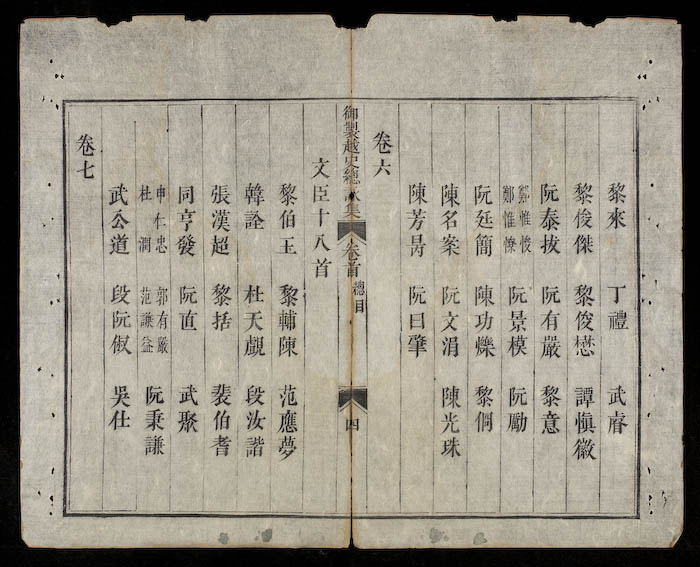 黎來 丁禮 武睿
黎俊傑 黎俊懋 譚愼徽
阮泰拔 阮有嚴 黎意
鄭惟悛 鄭惟憭 阮景模 阮勵
阮廷簡 陳功爍 黎侗
陳名案 阮文涓 陳光珠
陳芳昺 阮曰肇
卷六
御製越史總詠集 卷首 總目 四
文臣十八首
黎伯玉 黎輔陳 范應夢
韓詮 杜天覷 段汝諧
張漢超 黎括 裴伯耆
同亨發 阮直 武聚
申仁忠 杜潤 郭有嚴 范謙益 阮秉謙
武公道 段阮俶 吳仕
卷七